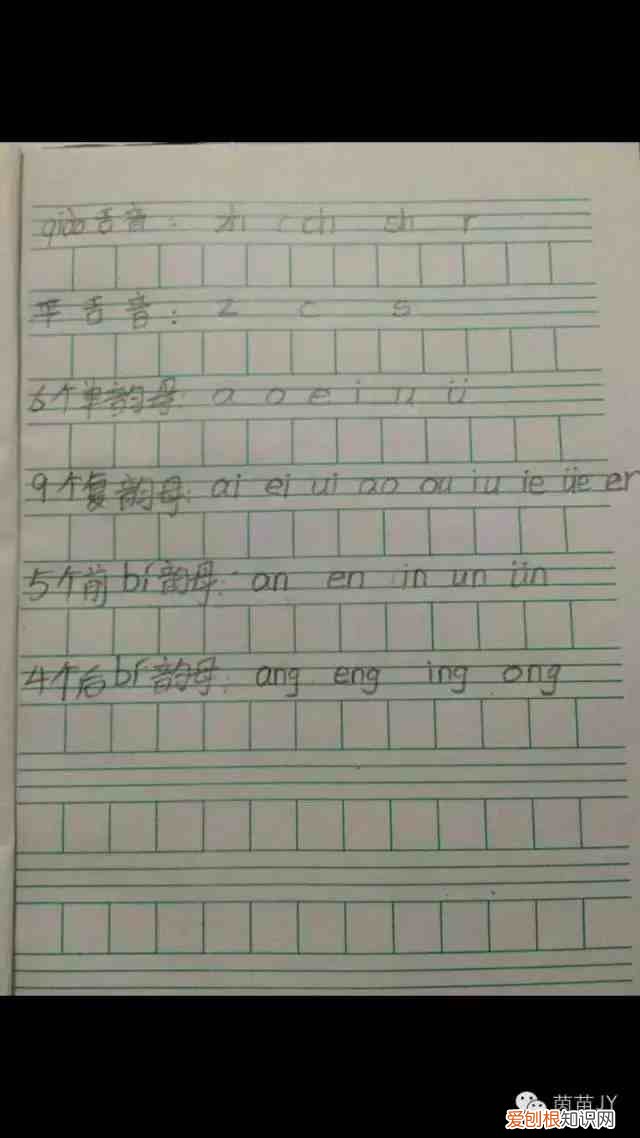 qiào舌音: zh ch sh r
平舌音: z c s
6个单韵母: a o e i u ü
9个复韵母: ai ei ui ao ou iu ie üe er
5个前bí韵母: an en in un ün
4个后bí韵母: ang eng ing ong
茵苗JY
爱刨根知识网